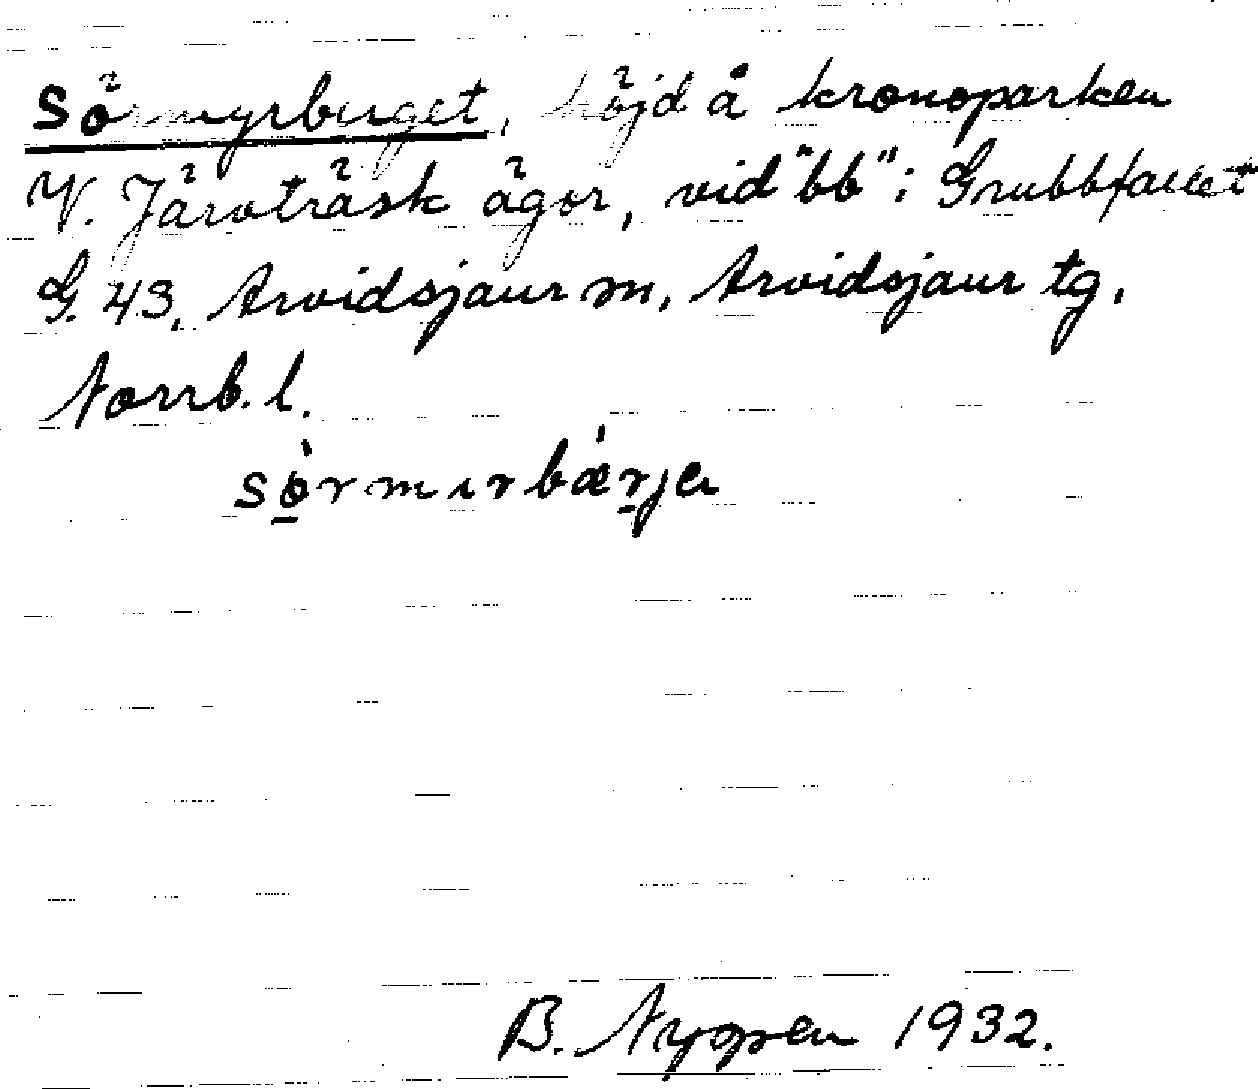 Sörmyrberget, höjd å kronoparken
V. Järvträsk ägor, vid "bb" i Grubbfallet
G. 43, Arvidsjaur sn, Arvidsjaur tg,
Norrb. l.
B. Nygren 1932.